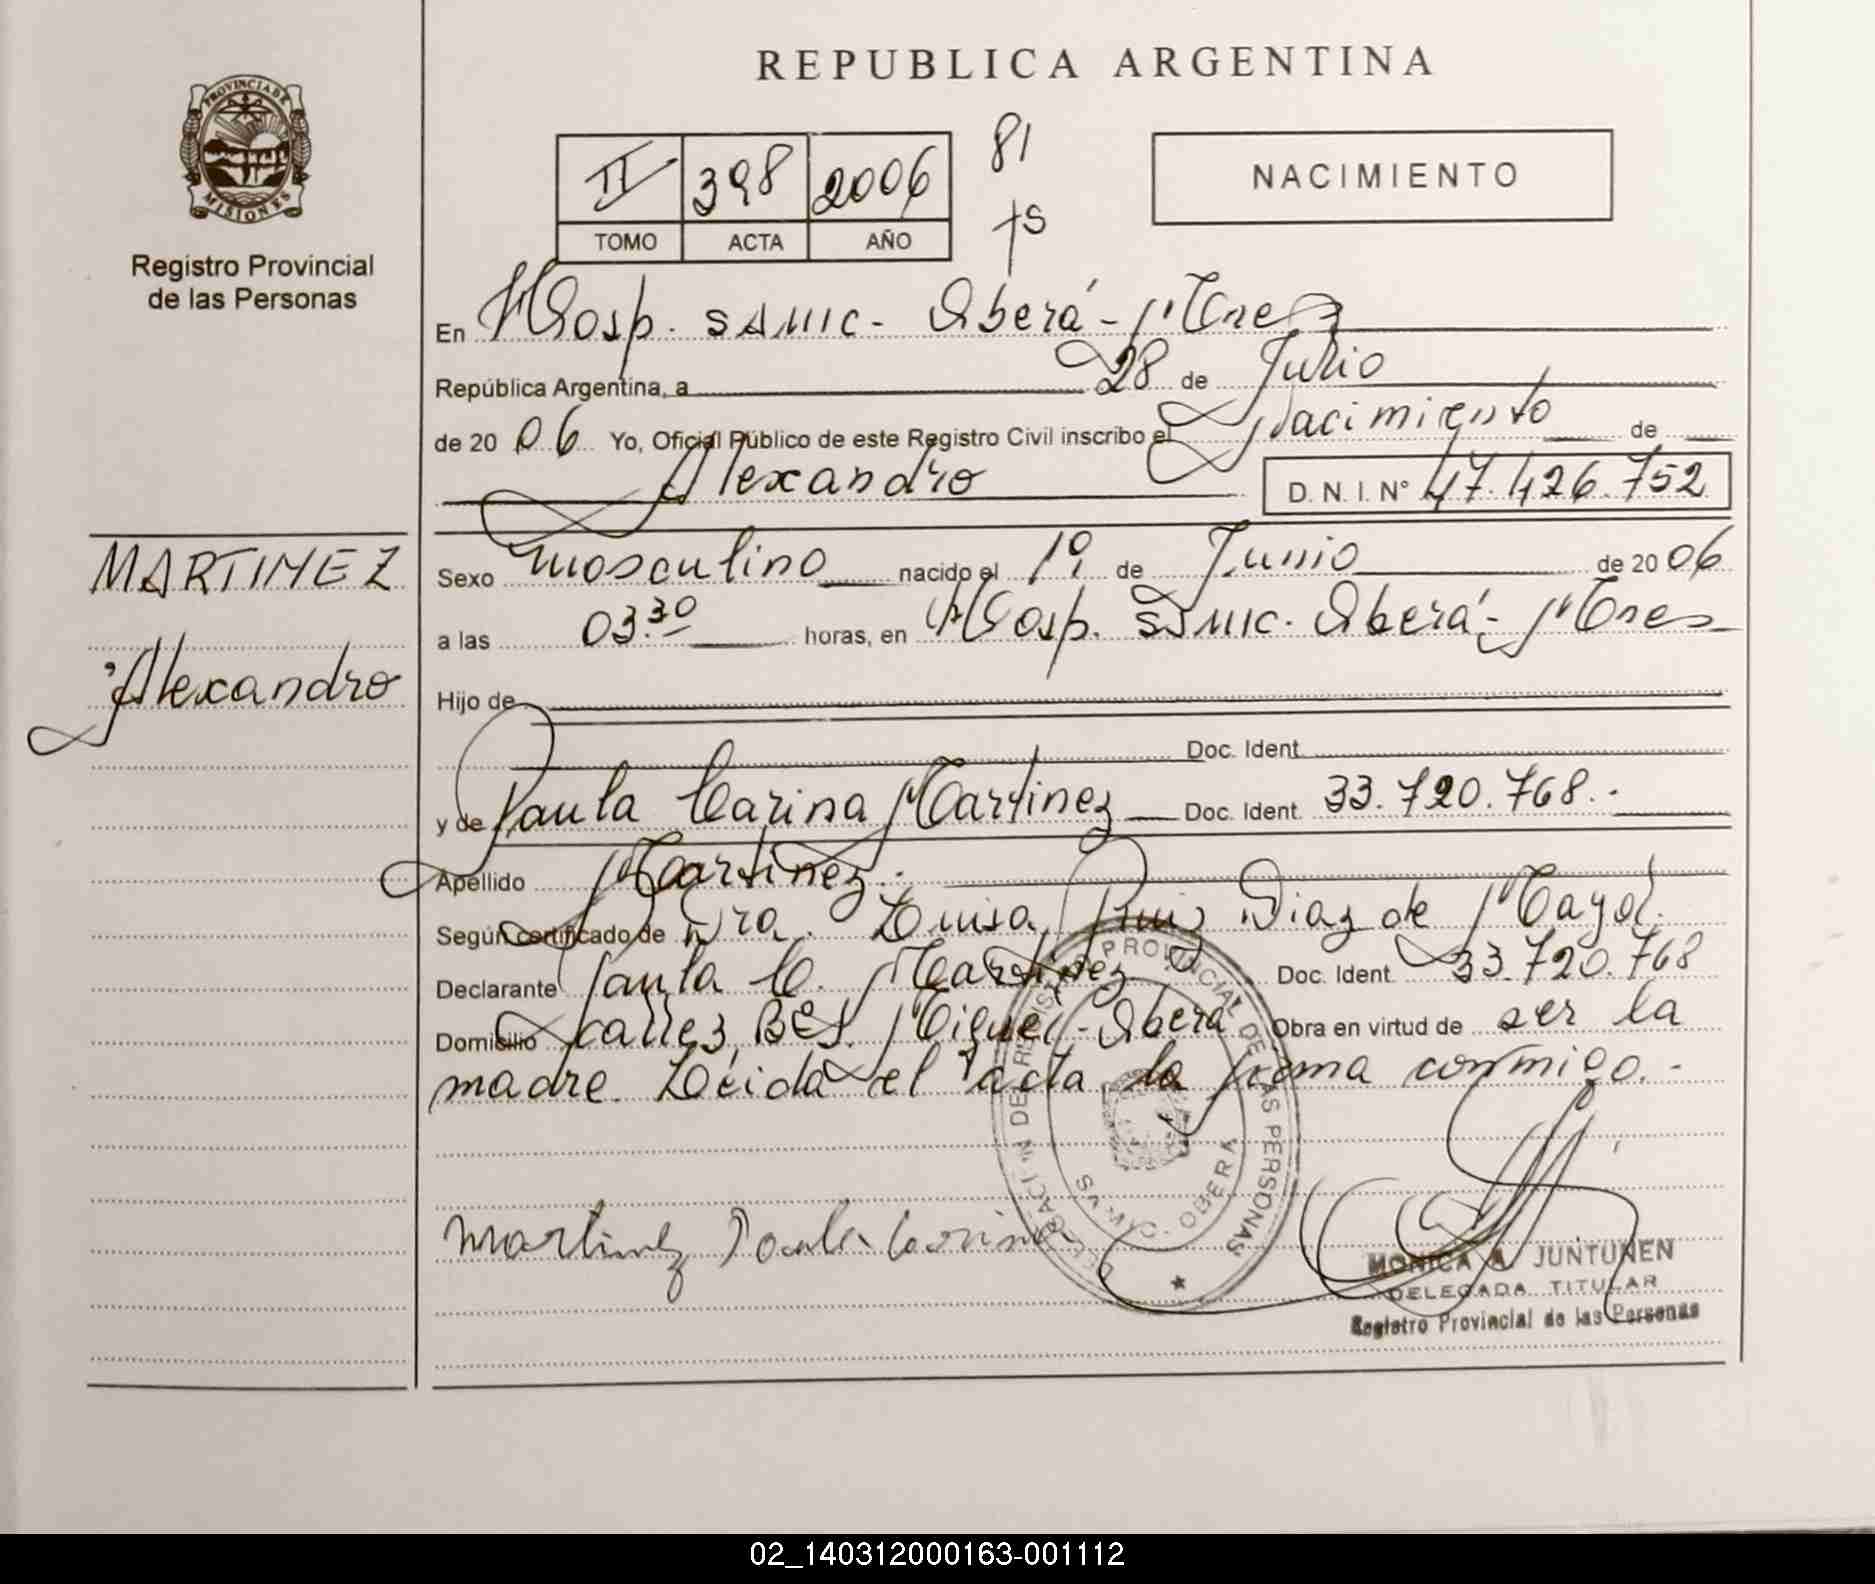 REPUBLICA ARGENTINA
PROVINCIA DE
MISIONES
Registro Provincial
de las Personas
II 398 2006
TOMO ACTA AÑO
81
NACIMIENTO
En Hosp. SAMIC - Oberá - Mnes
República Argentina, a 28 de Julio
de 20 06 Yo, Oficial Público de este Registro Civil inscribo el Nacimiento de
Alexandro D. N. I. N° 47.426.752
MARTINEZ
Alexandro
Sexo masculino nacido el 1º de Junio de 20 06
a las 03.30 horas, en Hosp. SAMIC. Oberá - Mnes
Hijo de
Doc. Ident.
y de Paula Carina Martinez Doc. Ident. 33.720.768.-
Apellido Martinez.-
Según certificado de Dra. Luisa Ruiz Diaz de Mayol.
Declarante Paula C. Martinez Doc. Ident. 33.720.768
Domicilio Miguel - Oberá Obra en virtud de ser la
madre. Leída el acta la firma conmigo.-
DELEGACION DEL REGISTRO PROVINCIAL DE LAS PERSONAS
OBERA
Martinez Paula Carina
MONICA A. JUNTUNEN
DELEGADA TITULAR
Registro Provincial de las Personas
02_140312000163-001112